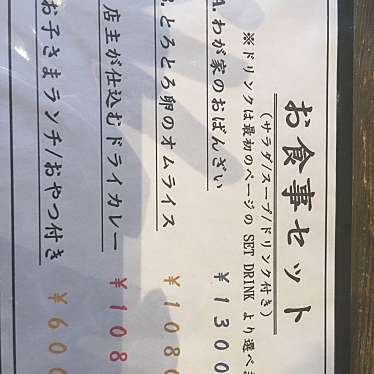 お食事セット
(サラダ/スープ/ドリンク付き)
※ドリンクは最初のページの SET DRINK より選べ
A.わが家のおばんざい ¥1300
.とろとろ卵のオムライス ¥1080
店主が仕込むドライカレー ¥108
お子さまランチ/おやつ付き ¥600